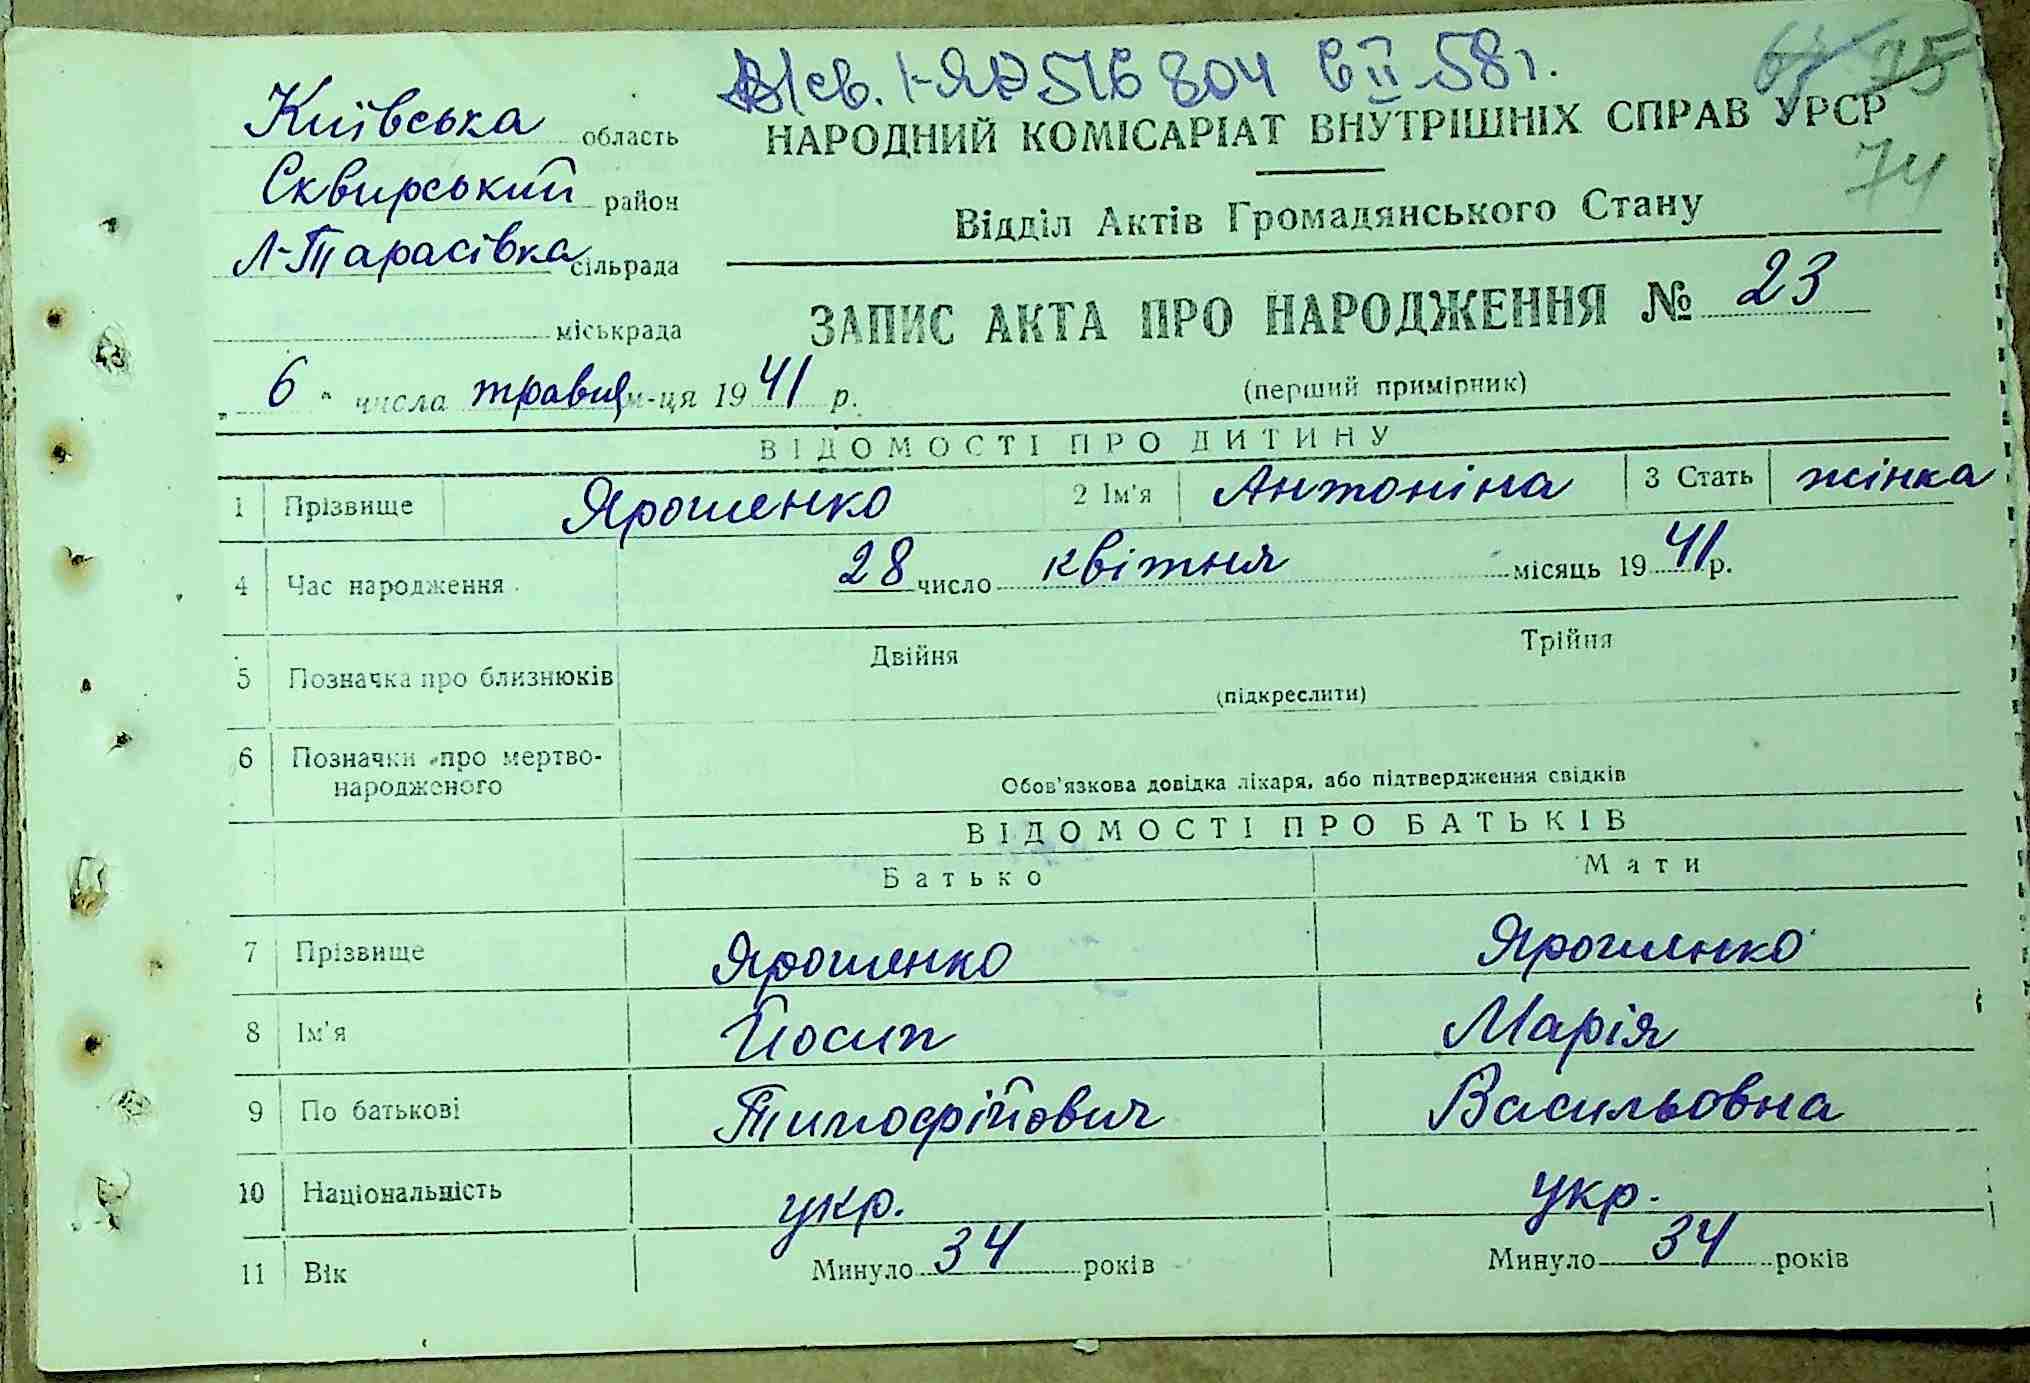 В/св. І-ЯР 516804 6 II 58 г.
75
74
Київська область
НАРОДНИЙ КОМІСАРІАТ ВНУТРІШНІХ СПРАВ УРСР
Сквирський район
Відділ Актів Громадянського Стану
Л-Тарасівка сільрада
ЗАПИС АКТА ПРО НАРОДЖЕННЯ № 23
міськрада
(перший примірник)
„ 6 “ числа травня м-ця 1941 р.
ВІДОМОСТІ ПРО ДИТИНУ
1 Прізвище Ярошенко 2 Ім'я Антоніна 3 Стать жінка
4 Час народження 28 число квітня місяць 1941 р.
5 Позначка про близнюків Двійня Трійня
(підкреслити)
6 Позначки про мертво-
народженого Обов'язкова довідка лікаря, або підтвердження свідків
ВІДОМОСТІ ПРО БАТЬКІВ
Батько Мати
7 Прізвище Ярошенко Ярошенко
8 Ім'я Йосип Марія
9 По батькові Тимофійович Васильовна
10 Національність укр. укр.
11 Вік Минуло 34 років Минуло 34 років